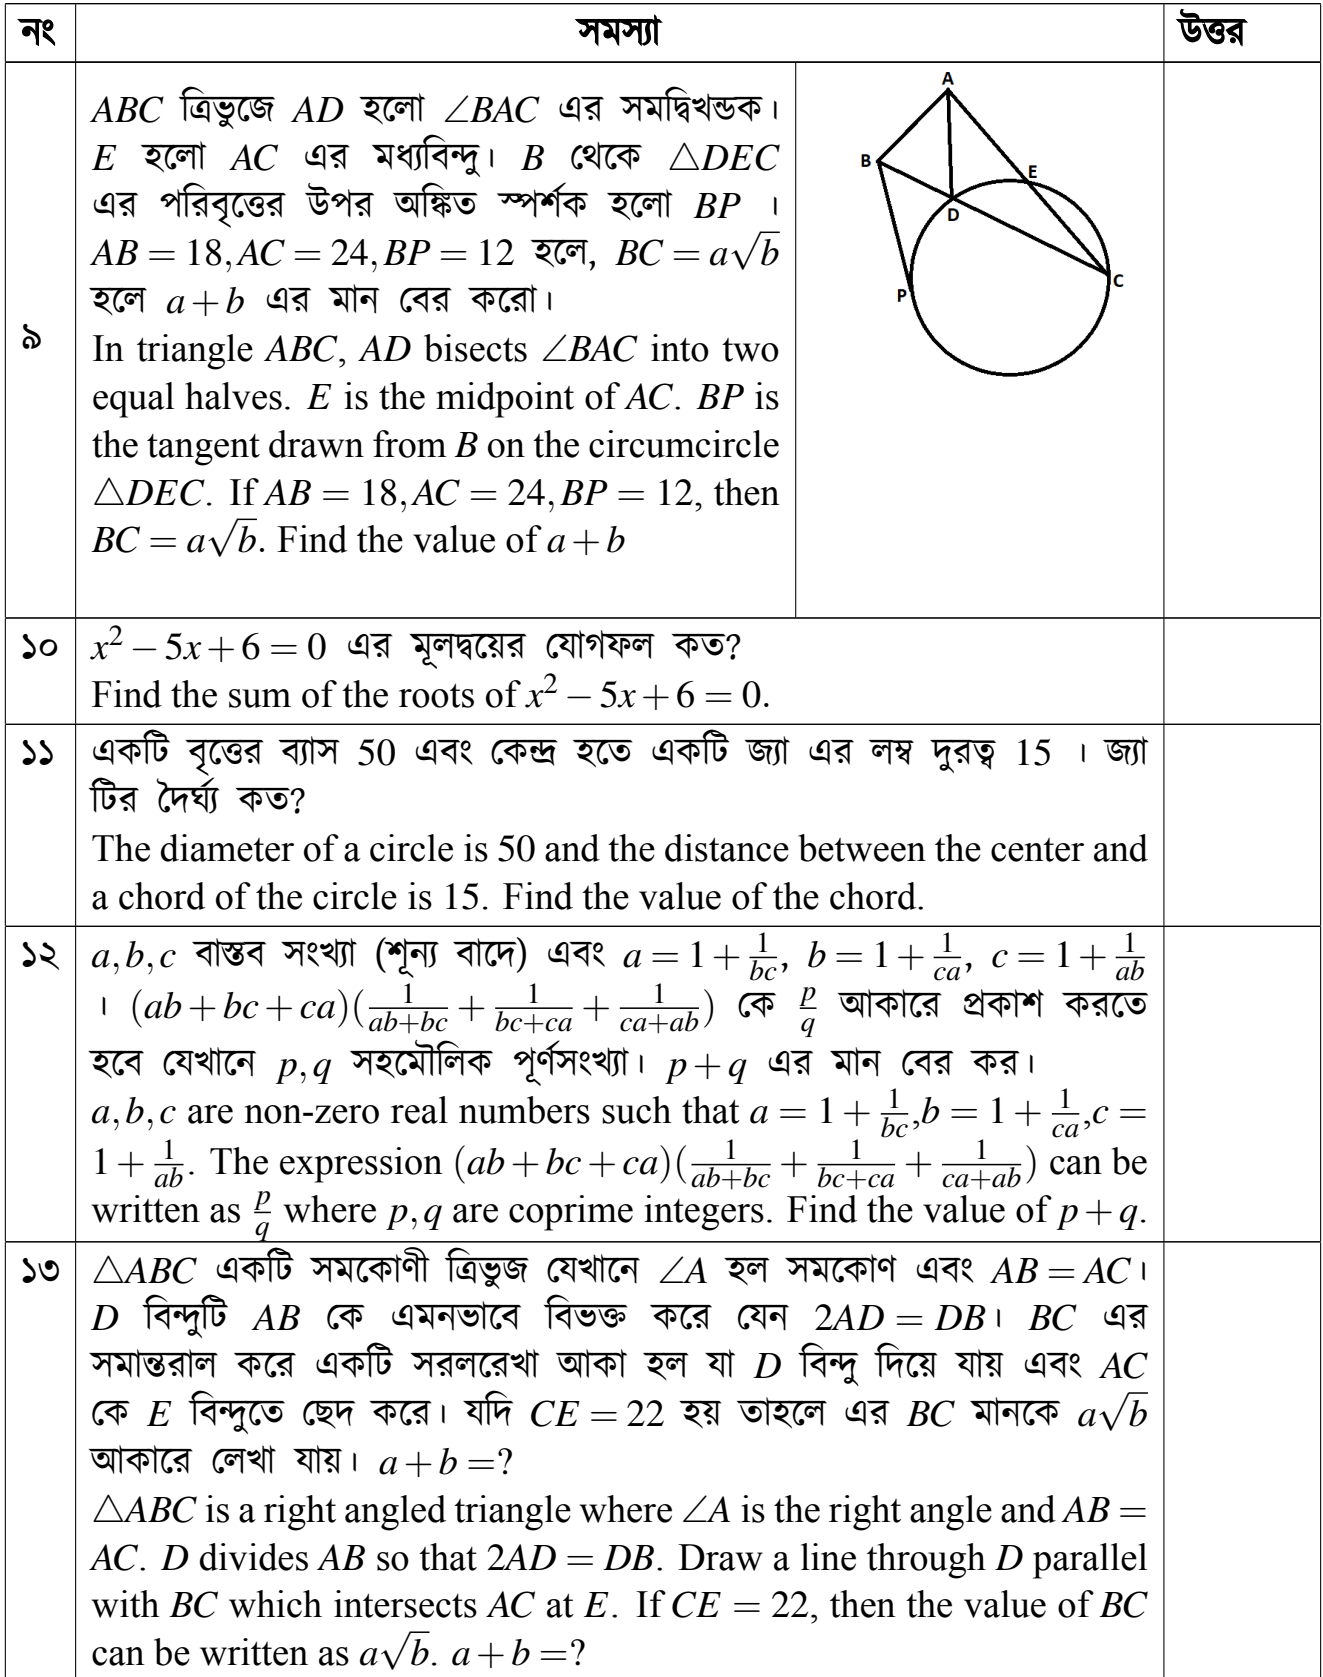 নং সমস্যা উত্তর
৯
ABC ত্রিভুজে AD হলো ∠BAC এর সমদ্বিখন্ডক।
E হলো AC এর মধ্যবিন্দু। B থেকে △DEC
এর পরিবৃত্তের উপর অঙ্কিত স্পর্শক হলো BP ।
AB = 18, AC = 24, BP = 12 হলে, BC = a√b
হলে a + b এর মান বের করো।
In triangle ABC, AD bisects ∠BAC into two
equal halves. E is the midpoint of AC. BP is
the tangent drawn from B on the circumcircle
△DEC. If AB = 18, AC = 24, BP = 12, then
BC = a√b. Find the value of a + b
A
B
E
D
P
C
১০ x² − 5x + 6 = 0 এর মূলদ্বয়ের যোগফল কত?
Find the sum of the roots of x² − 5x + 6 = 0.
১১ একটি বৃত্তের ব্যাস 50 এবং কেন্দ্র হতে একটি জ্যা এর লম্ব দুরত্ব 15 । জ্যা
টির দৈর্ঘ্য কত?
The diameter of a circle is 50 and the distance between the center and
a chord of the circle is 15. Find the value of the chord.
১২ a, b, c বাস্তব সংখ্যা (শূন্য বাদে) এবং a = 1 + 1/bc, b = 1 + 1/ca, c = 1 + 1/ab
। (ab + bc + ca)(1/(ab+bc) + 1/(bc+ca) + 1/(ca+ab)) কে p/q আকারে প্রকাশ করতে
হবে যেখানে p, q সহমৌলিক পূর্ণসংখ্যা। p + q এর মান বের কর।
a, b, c are non-zero real numbers such that a = 1 + 1/bc, b = 1 + 1/ca, c =
1 + 1/ab. The expression (ab + bc + ca)(1/(ab+bc) + 1/(bc+ca) + 1/(ca+ab)) can be
written as p/q where p, q are coprime integers. Find the value of p + q.
১৩ △ABC একটি সমকোণী ত্রিভুজ যেখানে ∠A হল সমকোণ এবং AB = AC।
D বিন্দুটি AB কে এমনভাবে বিভক্ত করে যেন 2AD = DB। BC এর
সমান্তরাল করে একটি সরলরেখা আকা হল যা D বিন্দু দিয়ে যায় এবং AC
কে E বিন্দুতে ছেদ করে। যদি CE = 22 হয় তাহলে এর BC মানকে a√b
আকারে লেখা যায়। a + b =?
△ABC is a right angled triangle where ∠A is the right angle and AB =
AC. D divides AB so that 2AD = DB. Draw a line through D parallel
with BC which intersects AC at E. If CE = 22, then the value of BC
can be written as a√b. a + b =?